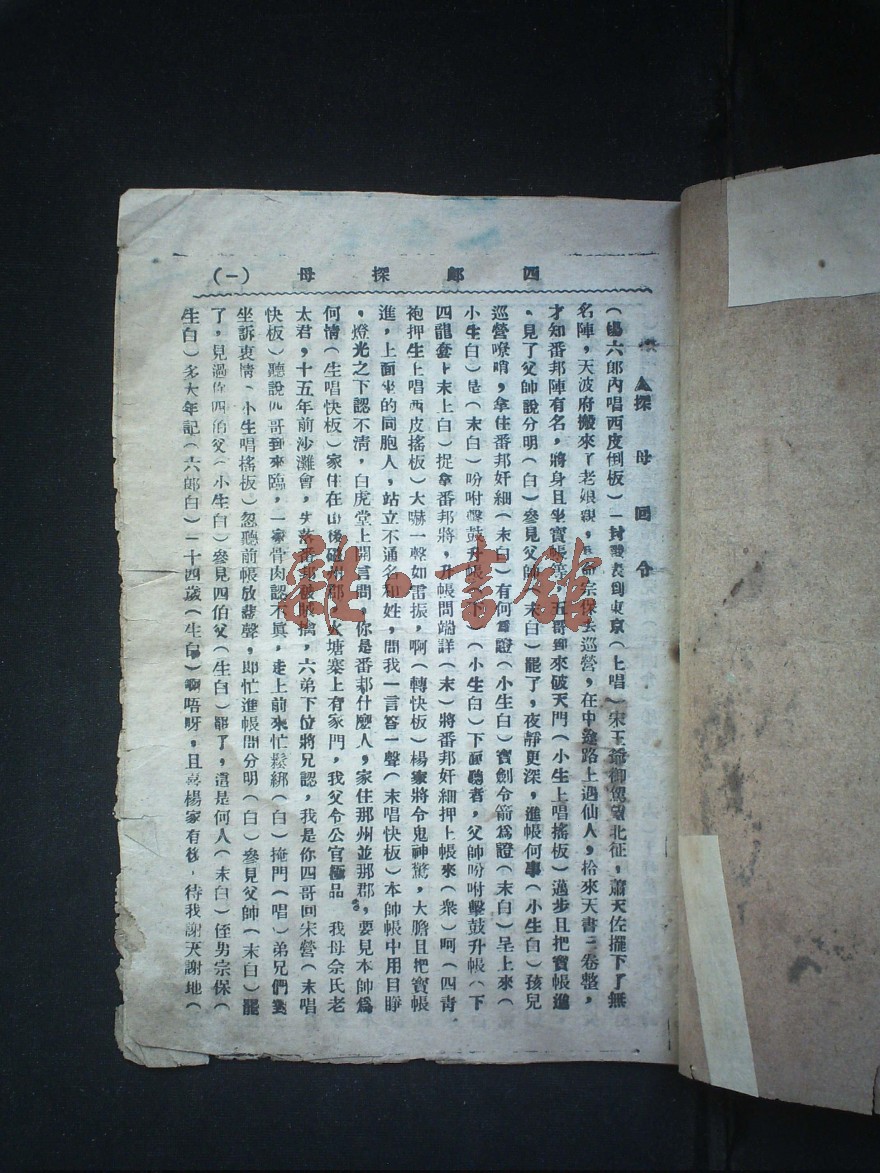 四郎探母 (一)
探母回令
(楊六郎內唱西皮倒板)一封發表到東京(上唱)宋王爺御駕望北征，蕭天佐擺下了無
名陣，天波府搬來了老娘親，宗保去巡營，在中途路上遇仙人，拾來天書三卷整，
才知番邦陣有名，將身且坐寶帳等，五哥到來破天門(小生上唱搖板)邁步且把寶帳進
，見了父帥說分明(白)參見父帥(末白)罷了，夜靜更深，進帳何事(小生白)孩兒
巡營嘹哨，拿住番邦奸細(末白)有何為證(小生白)寶劍令箭為證(末白)呈上來(
小生白)是(末白)吩咐擊鼓升帳(下)(小生白)下面聽者，父帥吩咐擊鼓升帳(下
四龍套上末上白)捉拿番邦將，升帳問端詳(末)將番邦奸細押上帳來(衆)呵(四青
袍押生上唱西皮搖板)大嚇一聲如雷振，啊(轉快板)楊家將令鬼神驚，大膽且把寶帳
進，上面坐的同胞人，站立不通名和姓，問我一言答一聲(末唱快板)本帥帳中用目睜
，燈光之下認不清，白虎堂上開言問，你是番邦什麼人，家住那州並那郡，要見本帥為
何情(生唱快板)家住在山後磁州郡，火塘寨上有家門，我父令公官極品 我母佘氏老
太君，十五年前沙灘會，失落番邦被擒，六弟下位將兄認，我是你四哥回宋營(末唱
快板)聽說四哥到來臨，一家骨肉認不真，走上前來忙鬆綁(白)掩門(唱)弟兄們對
坐訴衷情，小生唱搖板)忽聽前帳放聲，即忙進帳問分明(白)參見父帥(末白)罷
了，見過你四伯父(小生白)參見四伯父(生白)罷了，這是何人(末白)侄男宗保(
生白)多大年記(六郎白)一十四歲(生白)啊唔呀，且喜楊家有後，待我謝天謝地(
雜·書館